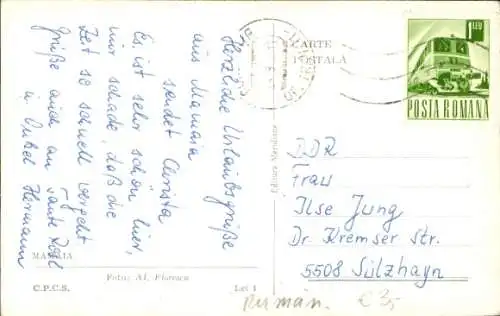 Herzliche Urlaubsgrüße
aus Mamaia
sendet Christa
Es ist sehr schön hier,
nur schade, daß die
Zeit so schnell vergeht
Grüße auch an Tante Rosl
u Onkel Hermann
MAMAIA
Foto: Al. Florescu
C.P.C.S.
Lei 1
Editura Meridiane
CARTE
POSTALA
1 LEU
POSTA ROMANA
DDR
Frau
Ilse Jung
Dr. Kremser Str.
5508 Sülzhayn
Rumän. € 3,-